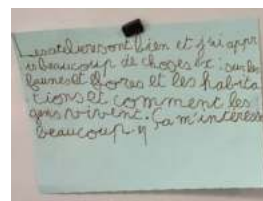 les ateliers sont bien et j'ai appr
is beaucoup de choses ex : sur les
faunes et flores et les habita
tions et comment les
gens vivent. Ça m'intéresse
beaucoup.